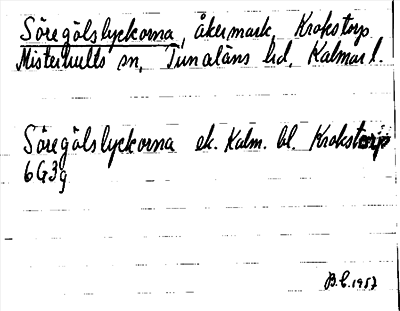 Söregölslyckorna, åkermark, Krokstorp
Misterhults sn, Tunaläns hd, Kalmar l.
Söregölslyckorna ek. Kalm. bl. Krokstorp
6G3g
B.E. 1957